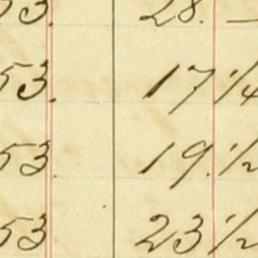 53. 28. —
53. 17 1/4
53 19. 1/2
53 23 1/2